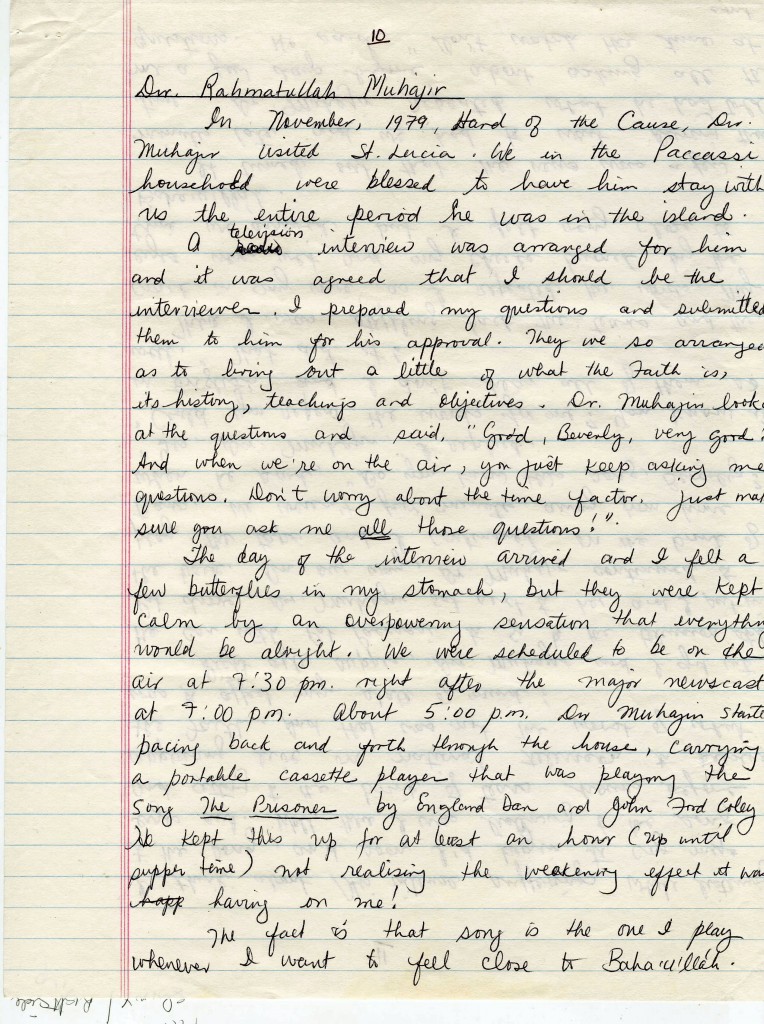 10
Dr. Rahmatullah Muhajir
In November, 1979, Hand of the Cause, Dr.
Muhajir visited St. Lucia. We in the Paccassi
household were blessed to have him stay with
us the entire period he was in the island.
A television interview was arranged for him
and it was agreed that I should be the
interviewer. I prepared my questions and submitted
them to him for his approval. They we so arranged
as to bring out a little of what the Faith is,
its history, teachings and objectives. Dr. Muhajir look
at the questions and said, "Good, Beverly, very good!
And when we're on the air, you just keep asking me
questions. Don't worry about the time factor. Just ma
sure you ask me all those questions!".
The day of the interview arrived and I felt a
few butterflies in my stomach, but they were kept
calm by an overpowering sensation that everythin
would be alright. We were scheduled to be on the
air at 7:30 pm. right after the major newscast
at 7:00 pm. About 5:00 p.m. Dr Muhajir starte
pacing back and forth through the house, carrying
a portable cassette player that was playing the
song The Prisoner by England Dan and John Ford Coley
He kept this up for at least an hour (up until
supper time) not realising the weakening effect it was
having on me!
The fact is that song is the one I play
whenever I want to feel close to Baha'u'lláh.